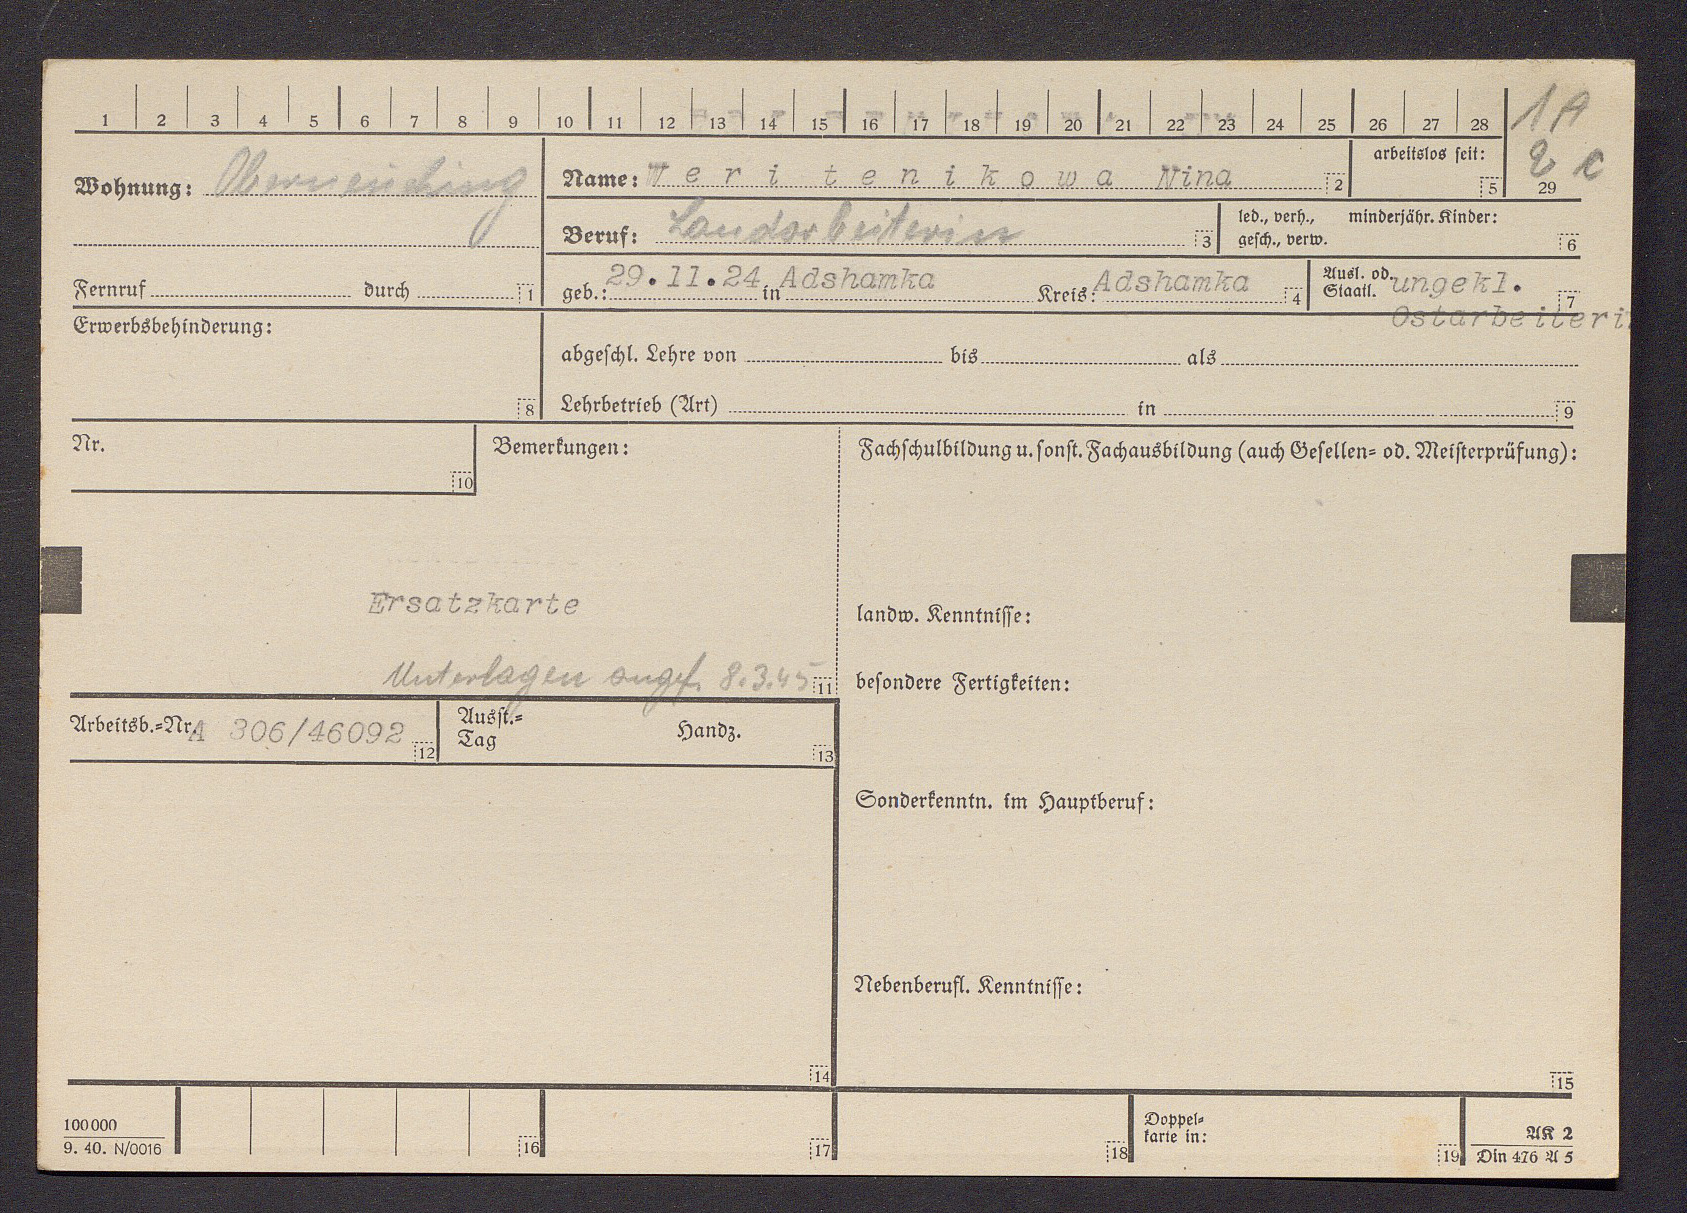 1 2 3 4 5 6 7 8 9 10 11 12 13 14 15 16 17 18 19 20 21 22 23 24 25 26 27 28
1A
2 c
29
Wohnung: Oberneuching
Name: W e r i t e n i k o w a Nina 2
arbeitslos seit:
5
Beruf: Landarbeiterin 3
led., verh., minderjähr. Kinder:
gesch., verw. 6
Fernruf durch 1
geb.: 29.11.24 in Adshamka Kreis: Adshamka 4
Ausl. od. ungekl.
Staatl. 7
Ostarbeiteri
Erwerbsbehinderung:
8
abgeschl. Lehre von bis als
Lehrbetrieb (Art) in 9
Nr.
10
Bemerkungen:
Ersatzkarte
Unterlagen angef. 8.3.45 11
Fachschulbildung u. sonst. Fachausbildung (auch Gesellen- od. Meisterprüfung):
landw. Kenntnisse:
besondere Fertigkeiten:
Arbeitsb.-Nr. A 306/46092 12
Ausst.-
Tag Handz.
13
Sonderkenntn. im Hauptberuf:
Nebenberufl. Kenntnisse:
14
15
100000
9. 40. N/0016
16
17
18
Doppel-
karte in:
19
AK 2
Din 476 A 5